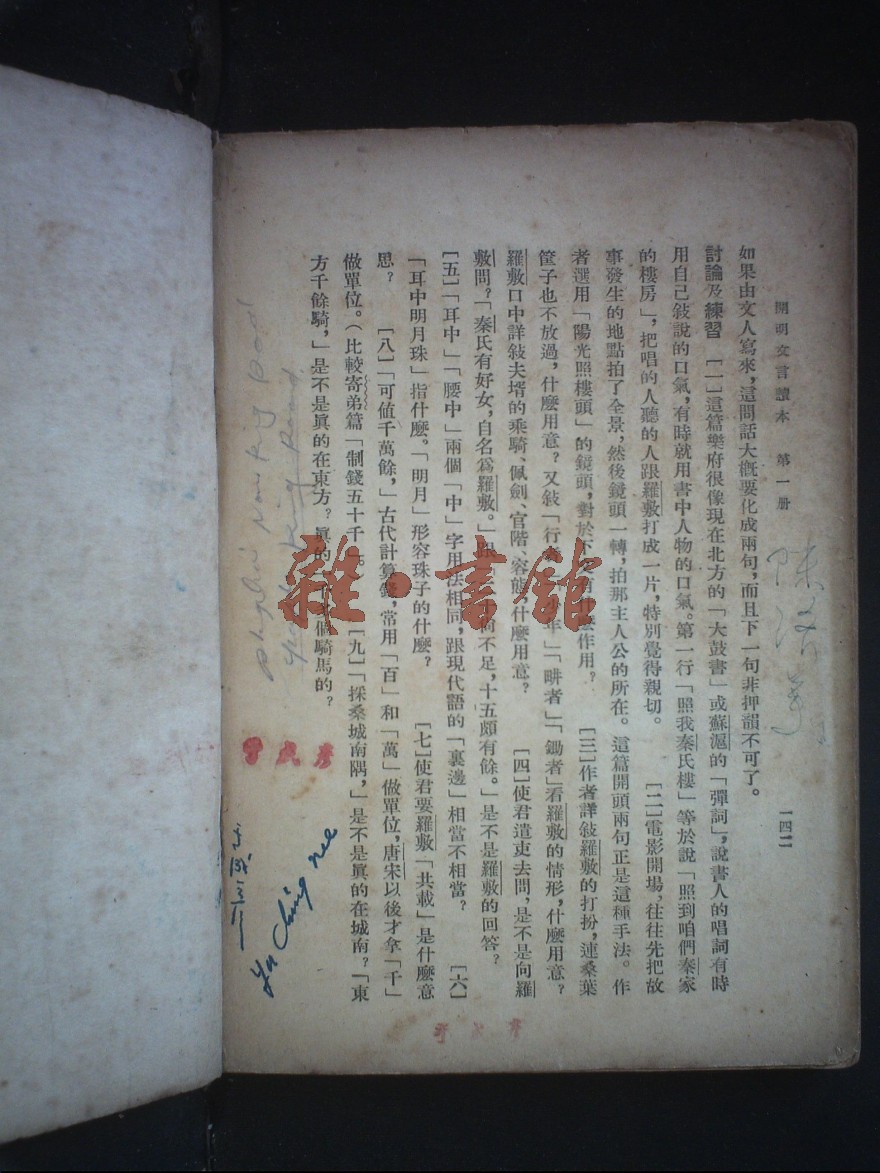 開明文言讀本　第一册
一四二
如果由文人寫來，這問話大概要化成兩句，而且下一句非押韻不可了。
討論及練習　［一］這篇樂府很像現在北方的「大鼓書」或蘇滬的「彈詞」，說書人的唱詞有時
用自己敍說的口氣，有時就用書中人物的口氣。第一行「照我秦氏樓」等於說「照到咱們秦家
的樓房」，把唱的人聽的人跟羅敷打成一片，特別覺得親切。　［二］電影開場，往往先把故
事發生的地點拍了全景，然後鏡頭一轉，拍那主人公的所在。這篇開頭兩句正是這種手法。作
者選用「陽光照樓頭」的鏡頭，對於下作用？　［三］作者詳敍羅敷的打扮，連桑葉
筐子也不放過，什麼用意？又敍「行年」「耕者」「鋤者」看羅敷的情形，什麼用意？
羅敷口中詳敍夫壻的乘騎、佩劍、官階、容態，什麼用意？　［四］使君遣吏去問，是不是向羅
敷問？「秦氏有好女，自名爲羅敷。」跟尚不足，十五頗有餘。」是不是羅敷的回答？
［五］「耳中」「腰中」兩個「中」字用法相同，跟現代語的「裏邊」相當不相當？　［六］
「耳中明月珠」指什麼。「明月」形容珠子的什麼？　［七］使君要羅敷「共載」是什麼意
思？　［八］「可値千萬餘，」古代計算錢，常用「百」和「萬」做單位，唐宋以後才拿「千」
做單位。（比較寄弟篇「制錢五十千」。　［九］「採桑城南隅，」是不是眞的在城南？「東
方千餘騎，」是不是眞的在東方？眞的個騎馬的？
雜·書館
Ya Ching nee